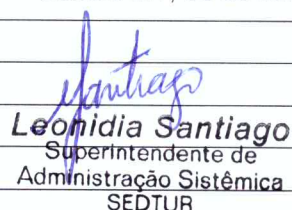 Santiago
Leonidia Santiago
Superintendente de
Administração Sistêmica
SEDTUR